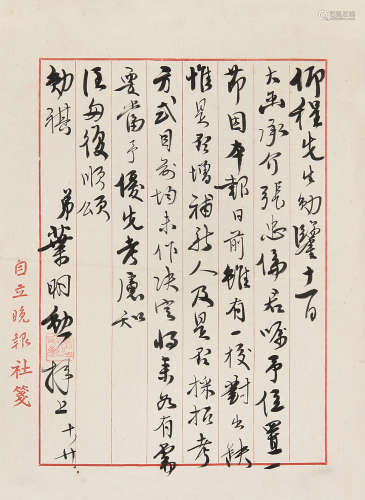 仰程先生勛鑒十一日
大函承介張忠君嘱予位置一
節因本報目前雖有一校對出缺
惟是否增補新人及是否採招考
方式目前均未作決定將來如有需
要當予優先考慮知
注匆復順頌
勛祺 弟葉明勳拜上 十廿
自立晚報社箋